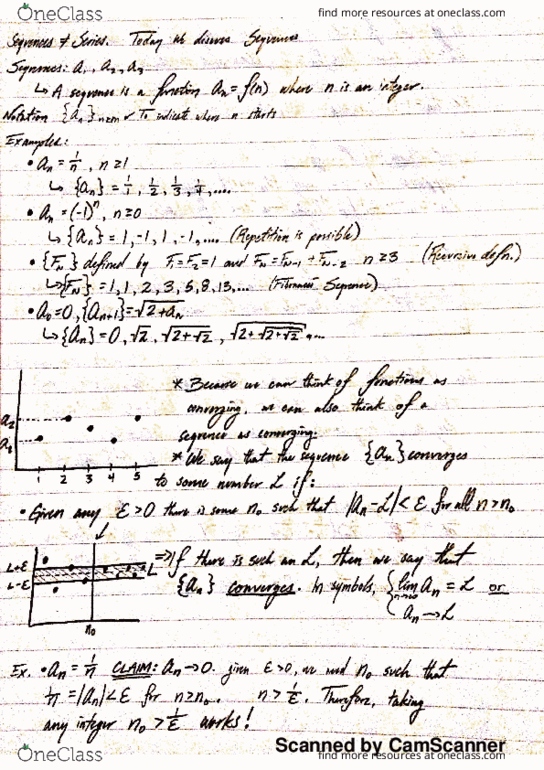 OneClass
find more resources at oneclass.com
Sequences & Series. Today we discuss Sequences
Sequences: a₁, a₂, a₃
↳ A sequence is a function aₙ = f(n) where n is an integer.
Notation {aₙ}ₙ≥ₘ to indicate where n starts
Examples:
• aₙ = 1/n, n ≥ 1
↳ {aₙ} = 1/1, 1/2, 1/3, 1/4, ....
• aₙ = (-1)ⁿ, n ≥ 0
↳ {aₙ} = 1, -1, 1, -1, .... (Repetition is possible)
• {F_N} defined by F₁=F₂=1 and F_N=F_N-1 + F_N-2 n ≥ 3 (Recursive defn.)
↳ {F_N} = 1, 1, 2, 3, 5, 8, 13, ... (Fibonacci Sequence)
• a₀=0, {aₙ₊₁}=√(2+aₙ)
↳ {aₙ} = 0, √2, √(2+√2), √(2+√(2+√2)), ...
* Because we can think of functions as
converging, we can also think of a
sequence as converging.
* We say that the sequence {aₙ} converges
to some number L if:
a₂
a₁
1 2 3 4 5
• Given any ε>0 there is some n₀ such that |aₙ-L|<ε for all n>n₀
L+ε
L-ε
L
n₀
⇒ If there is such an L, then we say that
{aₙ} converges. In symbols, { lim n→∞ aₙ = L or
aₙ → L
Ex. • aₙ = 1/n CLAIM: aₙ → 0. given ε>0, we need n₀ such that
1/n = |aₙ| < ε for n≥n₀. n > 1/ε. Therefore, taking
any integer n₀ > 1/ε works!
Scanned by CamScanner
OneClass
find more resources at oneclass.com